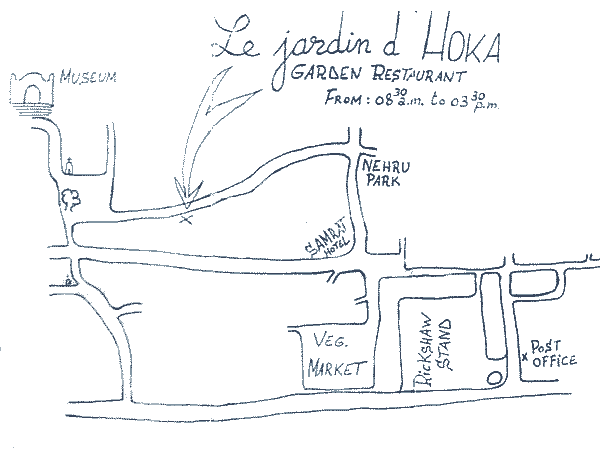 Le jardin d'HOKA
GARDEN RESTAURANT
FROM: 08 30 a.m. to 03 30 p.m.
MUSEUM
NEHRU
PARK
SAMRAT
HOTEL
VEG.
MARKET
RICKSHAW
STAND
POST
OFFICE